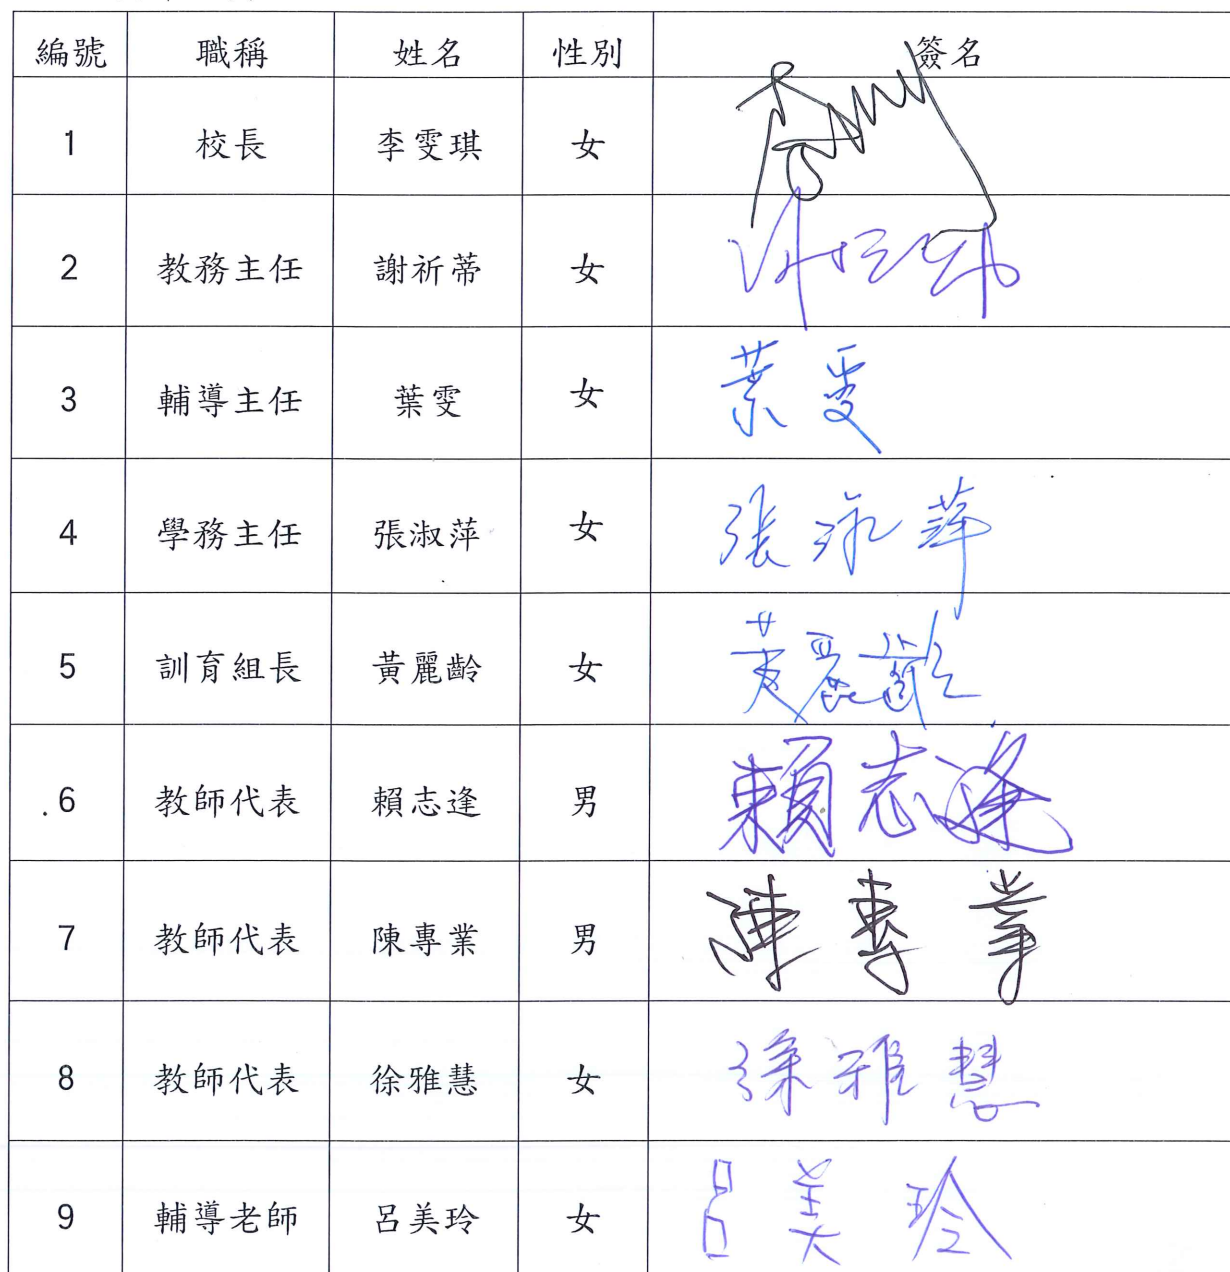 編號 職稱 姓名 性別 簽名
1 校長 李雯琪 女
2 教務主任 謝祈蒂 女
3 輔導主任 葉雯 女 葉雯
4 學務主任 張淑萍 女 張淑萍
5 訓育組長 黃麗齡 女 黃麗齡
6 教師代表 賴志逢 男 賴志逢
7 教師代表 陳專業 男 陳專業
8 教師代表 徐雅慧 女 徐雅慧
9 輔導老師 呂美玲 女 呂美玲